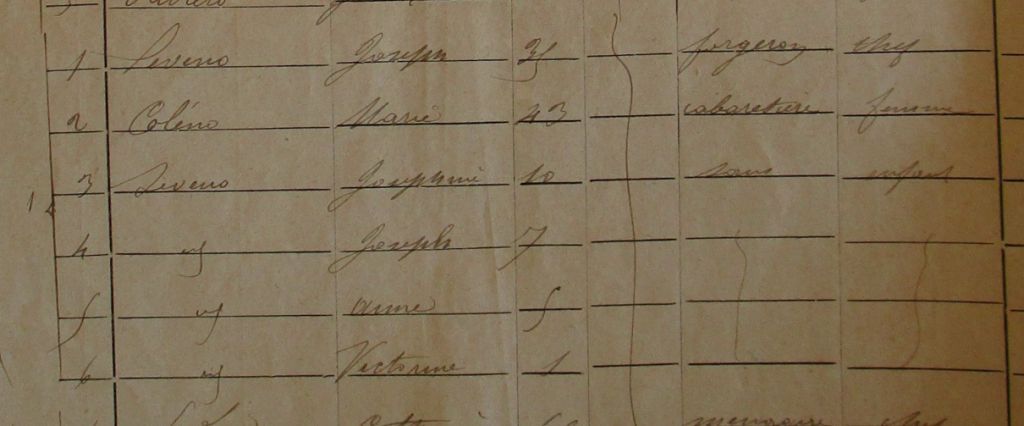 1 Leveno Joseph 35 forgeron chef
2 Coléno Marie 43 cabaretière femme
3 Leveno Josephine 10 sans enfant
4 id Joseph 7
1
5 id Anne 5
6 id Victorine 1
menagère chef